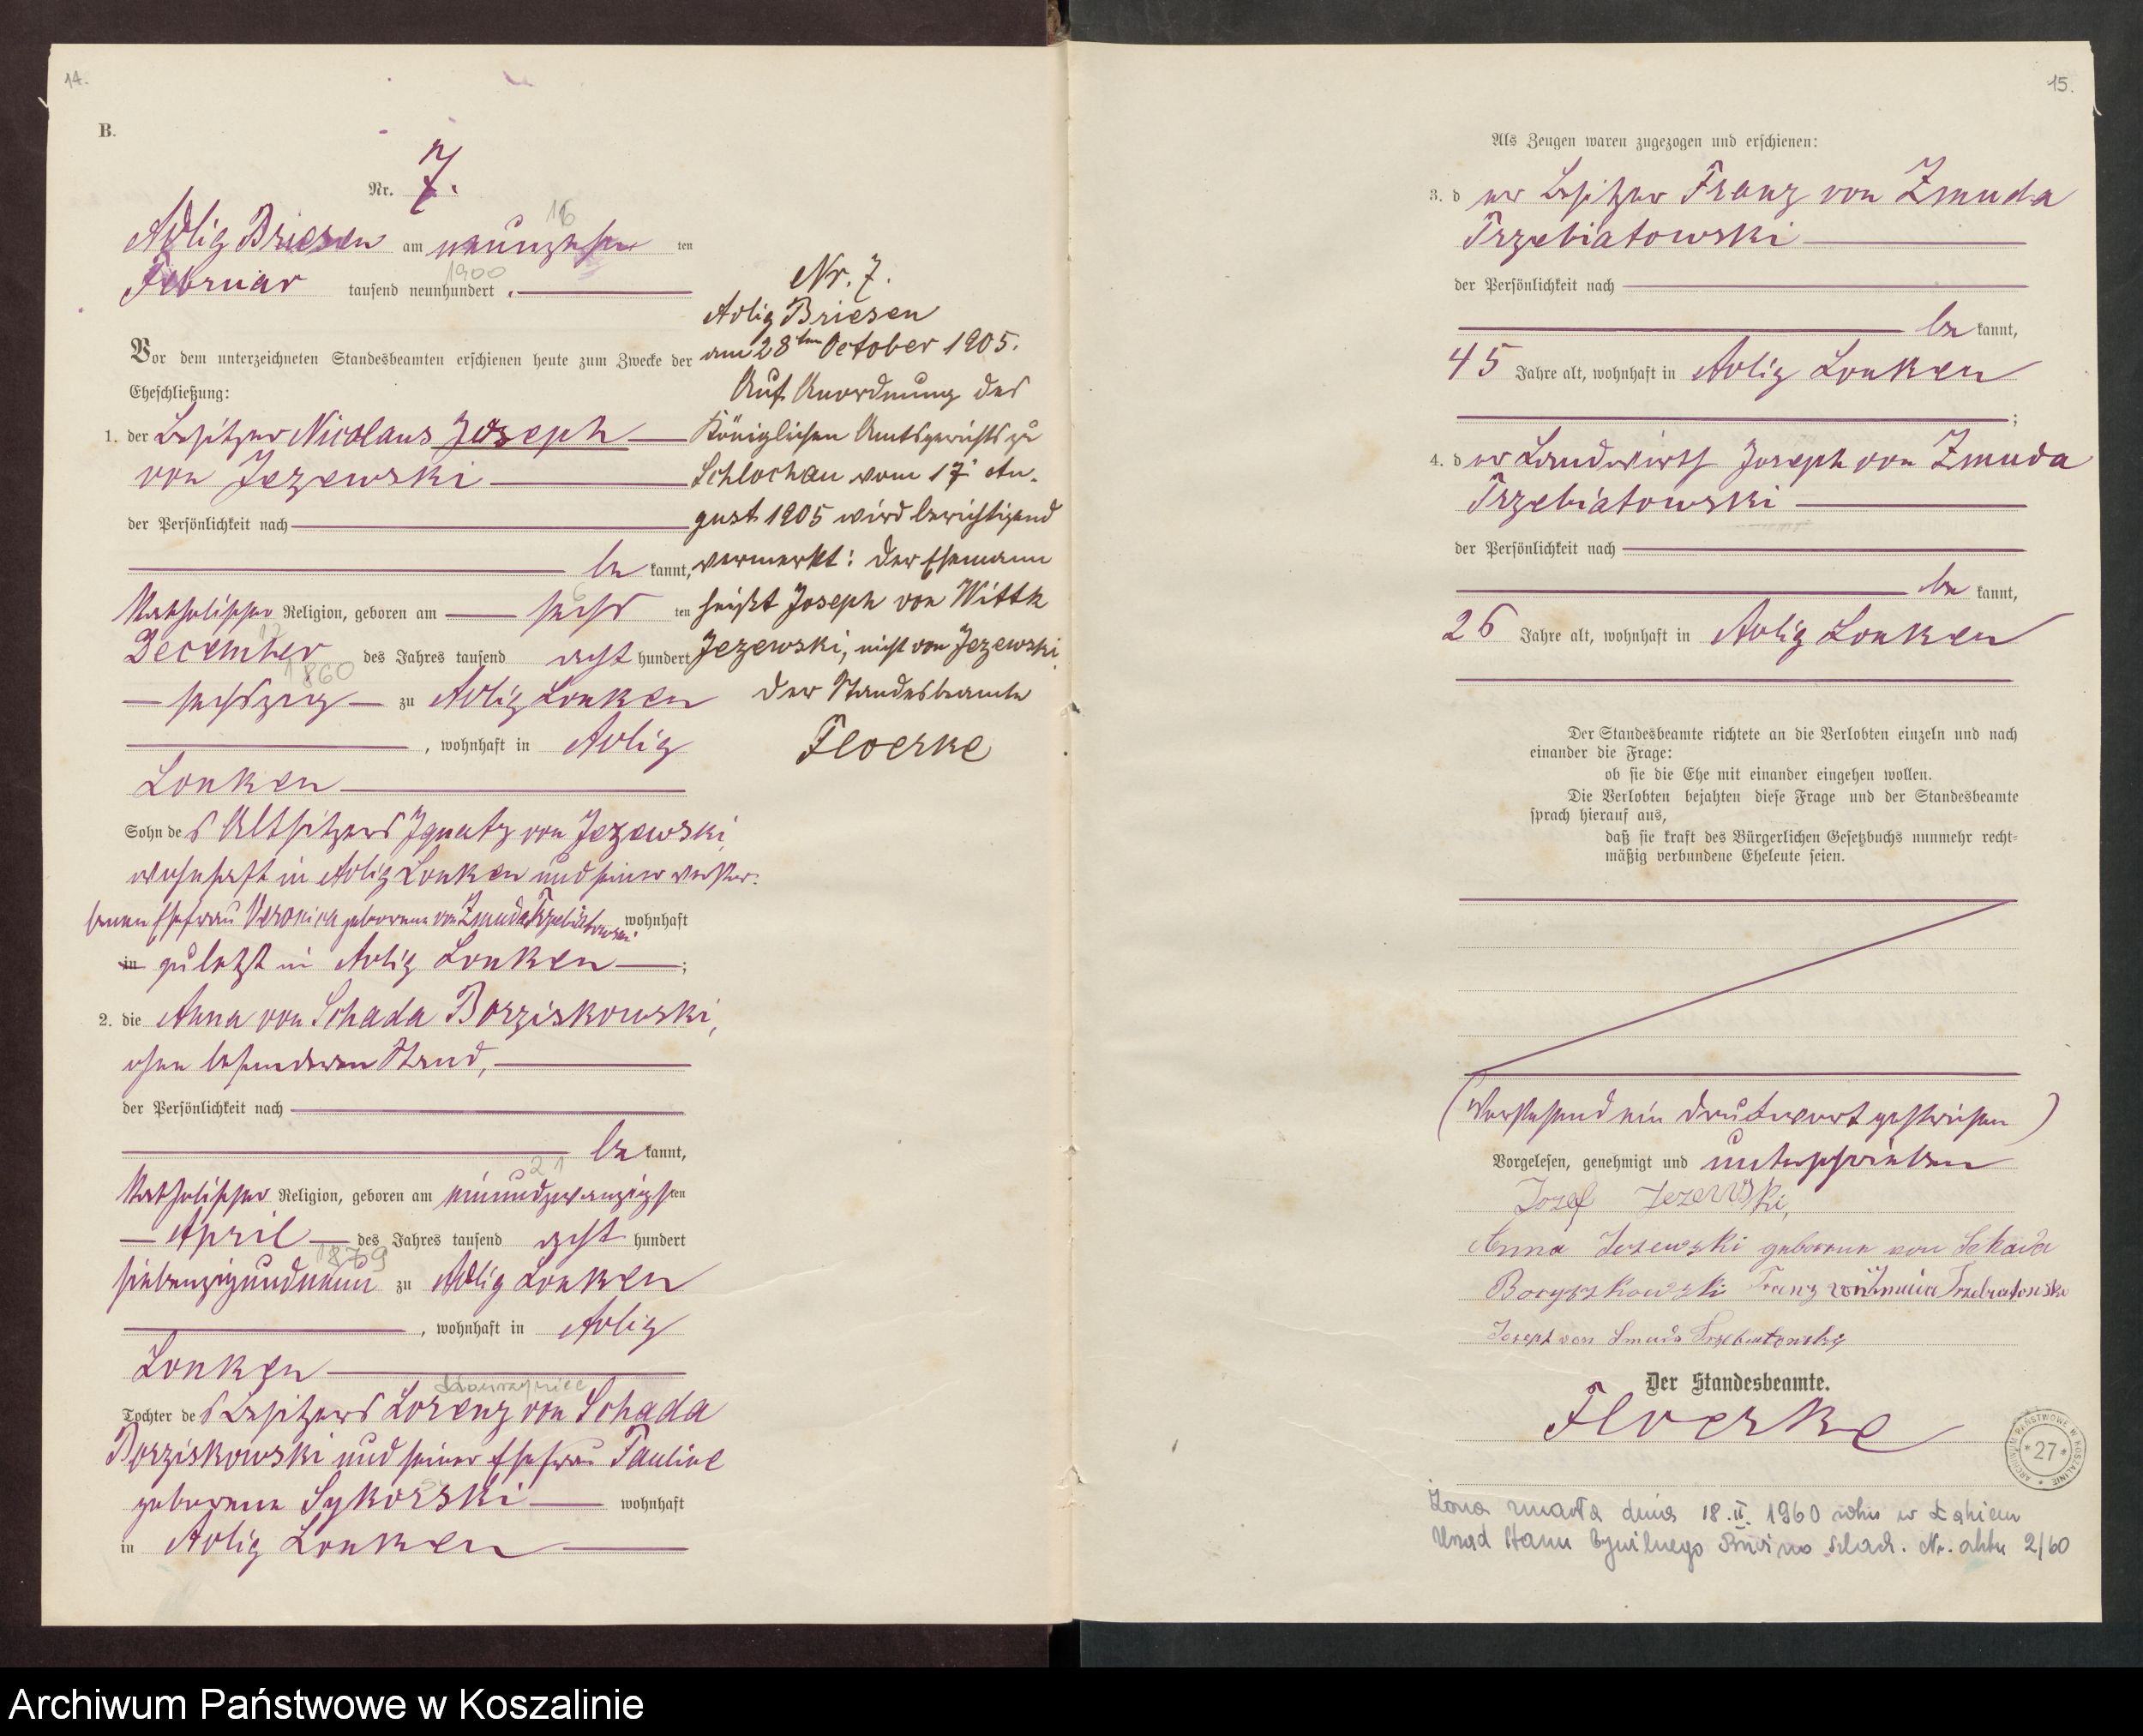 14.
B.
Nr. 7.
16
Adlig Briesen am neunzehn ten
1900
Februar tausend neunhundert
Vor dem unterzeichneten Standesbeamten erschienen heute zum Zwecke der
Eheschließung:
1. der Besitzer Nicolaus Joseph
von Jezewski
der Persönlichkeit nach
be kannt,
6
katholischer Religion, geboren am sechs ten
12
December des Jahres tausend acht hundert
1860
sechszig zu Adlig Lonken
, wohnhaft in Adlig
Lonken
Sohn de s Altsitzers Ignatz von Jezewski,
wohnhaft in Adlig Lonken und seiner verstor-
benen Ehefrau Veronica geborene von Zmuda Trzebiatowski wohnhaft
in zuletzt in Adlig Lonken ;
2. die Anna von Schada Borziskowski,
ohne besonderen Stand,
der Persönlichkeit nach
be kannt,
21
katholischer Religion, geboren am einundzwanzigsten
April des Jahres tausend acht hundert
1879
siebenzigundneun zu Adlig Lonken
, wohnhaft in Adlig
Lonken
Tochter de s Besitzers Lorenz von Schada
Borziskowski und seiner Ehefrau Pauline
geborene Sykorski wohnhaft
in Adlig Lonken
Nr. 7.
Adlig Briesen
am 28ten October 1905.
Auf Anordnung des
Königlichen Amtsgerichts zu
Schlochau vom 17. Au-
gust 1905 wird berichtigend
vermerkt: Der Ehemann
heißt Joseph von Wittk
Jezewski, nicht von Jezewski.
Der Standesbeamte
Floerke
15.
Als Zeugen waren zugezogen und erschienen:
3. d er Besitzer Franz von Zmuda
Trzebiatowski
der Persönlichkeit nach
be kannt,
45 Jahre alt, wohnhaft in Adlig Lonken
;
4. d er Landwirth Joseph von Zmuda
Trzebiatowski
der Persönlichkeit nach
be kannt,
26 Jahre alt, wohnhaft in Adlig Lonken
Der Standesbeamte richtete an die Verlobten einzeln und nach
einander die Frage:
ob sie die Ehe mit einander eingehen wollen.
Die Verlobten bejahten diese Frage und der Standesbeamte
sprach hierauf aus,
daß sie kraft des Bürgerlichen Gesetzbuchs nunmehr recht-
mäßig verbundene Eheleute seien.
(Vorstehend ein Druckwort gestrichen)
Vorgelesen, genehmigt und unterschrieben
Josef Jezewski,
Anna Jezewski geborene von Schada
Borzyszkowski Franz von Zmuda Trzebiatowski
Joseph von Zmuda Trzebiatowski
Der Standesbeamte.
Floerke
ARCHIWUM PAŃSTWOWE W KOSZALINIE
* 27 *
Żona zmarła dnia 18.II.1960 roku w Łąkiem
Urząd Stanu Cywilnego Nr. aktu 2/60
Archiwum Państwowe w Koszalinie